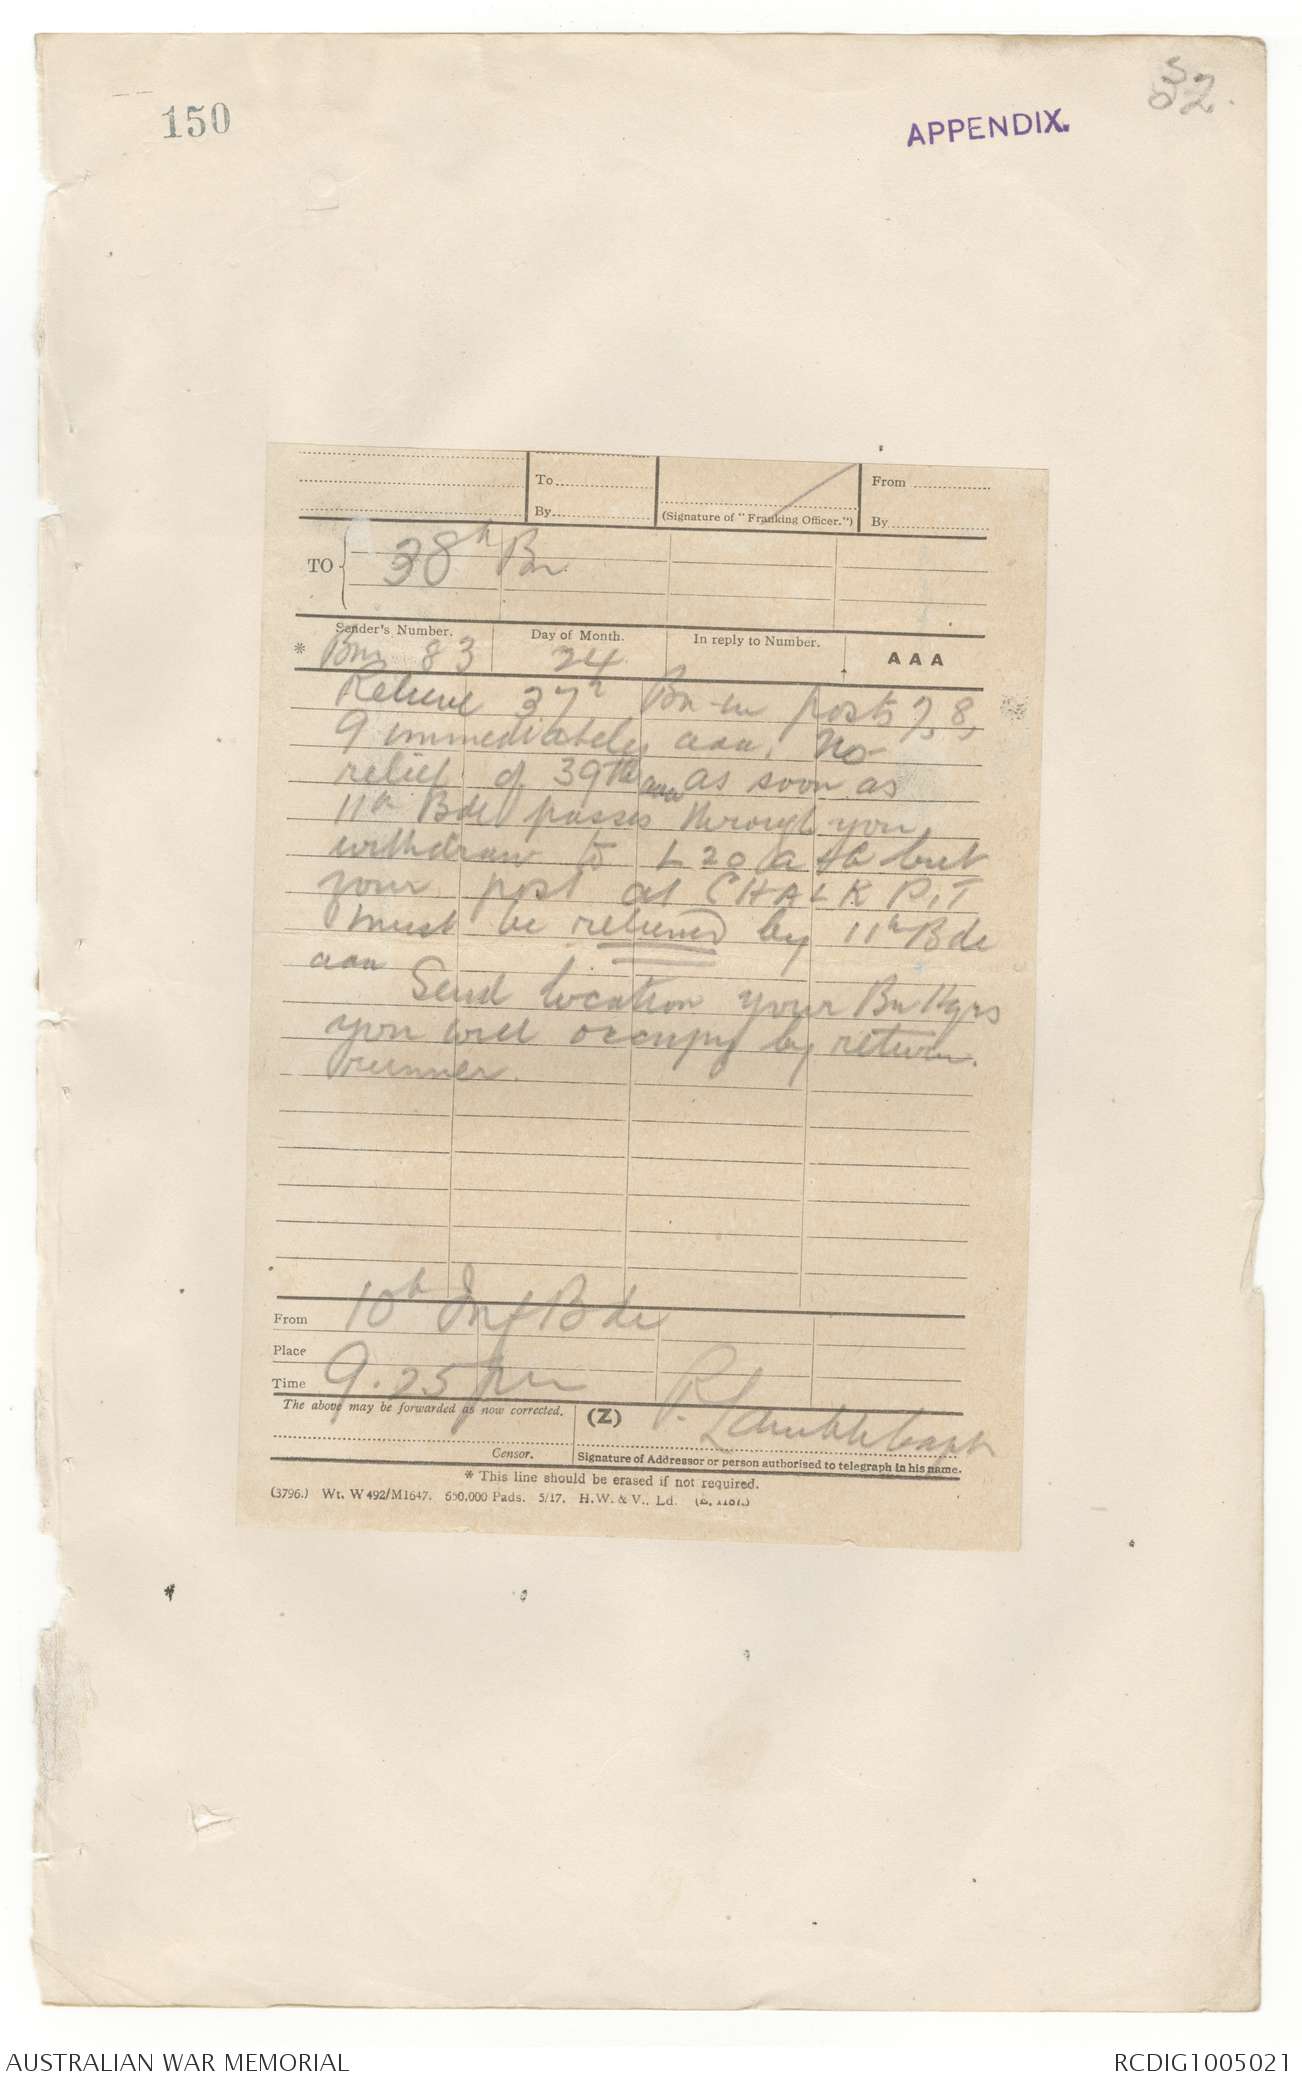 150
APPENDIX.
32.
To
By
(Signature of "Franking Officer.")
From
By
TO 38th Bn
Sender's Number. Day of Month. In reply to Number. AAA
* Bm 83 24
Relieve 37th Bn in posts 7, 8,
9 immediately aaa. No
relief of 39th aaa as soon as
11th Bde passes through you
withdraw to L 20 a & b but
your post at CHALK PIT
must be relieved by 11th Bde
aaa Send location your Bn Hqrs
you will occupy by return
runner.
From 10th Inf Bde
Place
Time 9.25 pm
The above may be forwarded as now corrected. (Z)
Censor.
Signature of Addressor or person authorised to telegraph in his name.
* This line should be erased if not required.
(3796.) Wt. W492/M1647. 650,000 Pads. 5/17. H.W. & V., Ld.
AUSTRALIAN WAR MEMORIAL
RCDIG1005021